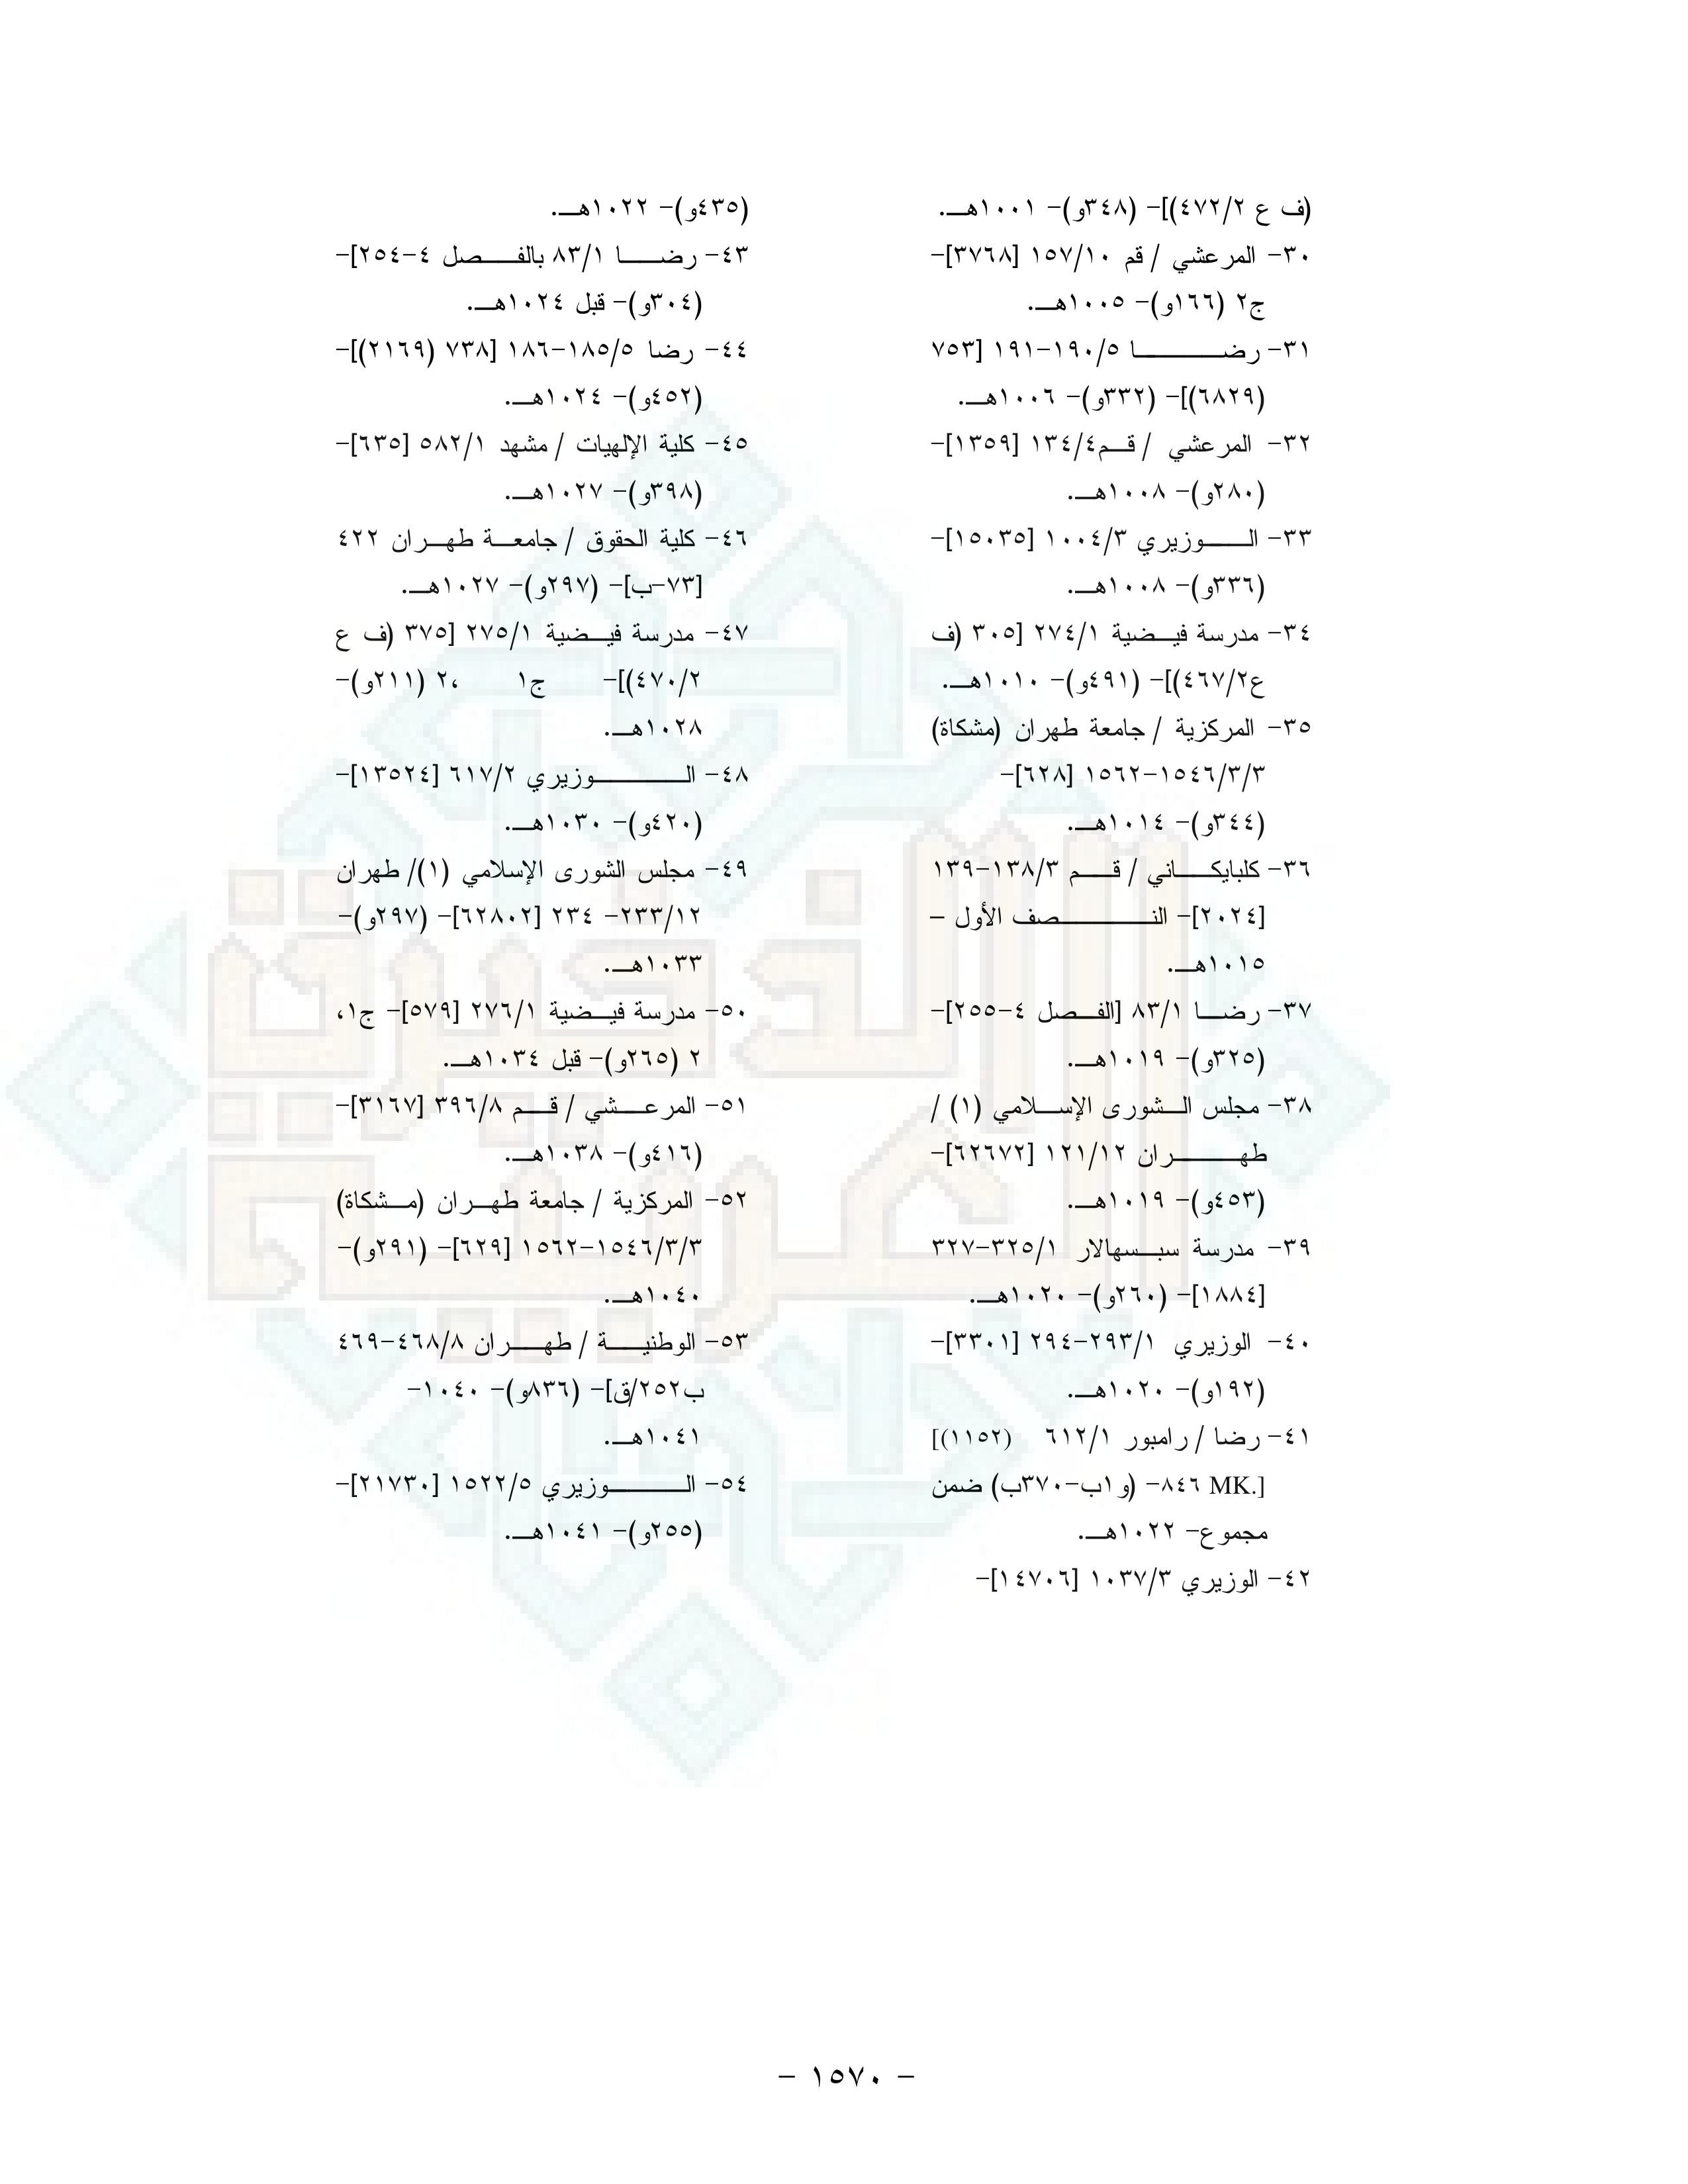 (ف ع ٤٧٢/٢)]- (٣٤٨و)- ١٠٠١هـ.
٣٠- المرعشي / قم ١٥٧/١٠ [٣٧٦٨]-
ج٢ (١٦٦و)- ١٠٠٥هـ.
٣١- رضا ١٩٠/٥-١٩١ [٧٥٣
(٦٨٢٩)]- (٣٣٢و)- ١٠٠٦هـ.
٣٢- المرعشي / قم١٣٤/٤ [١٣٥٩]-
(٢٨٠و)- ١٠٠٨هـ.
٣٣- الوزيري ١٠٠٤/٣ [١٥٠٣٥]-
(٣٣٦و)- ١٠٠٨هـ.
٣٤- مدرسة فيضية ٢٧٤/١ [٣٠٥ (ف
ع٤٦٧/٢)]- (٤٩١و)- ١٠١٠هـ.
٣٥- المركزية / جامعة طهران (مشكاة)
١٥٤٦/٣/٣-١٥٦٢ [٦٢٨]-
(٣٤٤و)- ١٠١٤هـ.
٣٦- كلبايكاني / قم ١٣٨/٣-١٣٩
[٢٠٢٤]- النصف الأول –
١٠١٥هـ.
٣٧- رضا ٨٣/١ [الفصل ٤-٢٥٥]-
(٣٢٥و)- ١٠١٩هـ.
٣٨- مجلس الشورى الإسلامي (١) /
طهران ١٢١/١٢ [٦٢٦٧٢]-
(٤٥٣و)- ١٠١٩هـ.
٣٩- مدرسة سبسهالار ٣٢٥/١-٣٢٧
[١٨٨٤]- (٢٦٠و)- ١٠٢٠هـ.
٤٠- الوزيري ٢٩٣/١-٢٩٤ [٣٣٠١]-
(١٩٢و)- ١٠٢٠هـ.
٤١- رضا / رامبور ٦١٢/١ (١١٥٢)]
[.MK ٨٤٦- (و١ب-٣٧٠ب) ضمن
مجموع- ١٠٢٢هـ.
٤٢- الوزيري ١٠٣٧/٣ [١٤٧٠٦]-
(٤٣٥و)- ١٠٢٢هـ.
٤٣- رضا ٨٣/١ بالفصل ٤-٢٥٤]-
(٣٠٤و)- قبل ١٠٢٤هـ.
٤٤- رضا ١٨٥/٥-١٨٦ [٧٣٨ (٢١٦٩)]-
(٤٥٢و)- ١٠٢٤هـ.
٤٥- كلية الإلهيات / مشهد ٥٨٢/١ [٦٣٥]-
(٣٩٨و)- ١٠٢٧هـ.
٤٦- كلية الحقوق / جامعة طهران ٤٢٢
[٧٣-ب]- (٢٩٧و)- ١٠٢٧هـ.
٤٧- مدرسة فيضية ٢٧٥/١ [٣٧٥ (ف ع
٤٧٠/٢)]- ج١ ،٢ (٢١١و)-
١٠٢٨هـ.
٤٨- الوزيري ٦١٧/٢ [١٣٥٢٤]-
(٤٢٠و)- ١٠٣٠هـ.
٤٩- مجلس الشورى الإسلامي (١)/ طهران
٢٣٣/١٢- ٢٣٤ [٦٢٨٠٢]- (٢٩٧و)-
١٠٣٣هـ.
٥٠- مدرسة فيضية ٢٧٦/١ [٥٧٩]- ج١،
٢ (٢٦٥و)- قبل ١٠٣٤هـ.
٥١- المرعشي / قم ٣٩٦/٨ [٣١٦٧]-
(٤١٦و)- ١٠٣٨هـ.
٥٢- المركزية / جامعة طهران (مشكاة)
١٥٤٦/٣/٣-١٥٦٢ [٦٢٩]- (٢٩١و)-
١٠٤٠هـ.
٥٣- الوطنية / طهران ٤٦٨/٨-٤٦٩
ب٢٥٢/ق]- (٨٣٦و)- ١٠٤٠-
١٠٤١هـ.
٥٤- الوزيري ١٥٢٢/٥ [٢١٧٣٠]-
(٢٥٥و)- ١٠٤١هـ.
الذخيرة
العربية
- ١٥٧٠ -